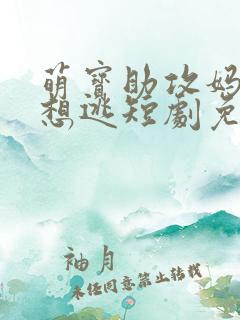 萌寶助攻妈
想逃短劇免
袖月
未任同意禁止转载